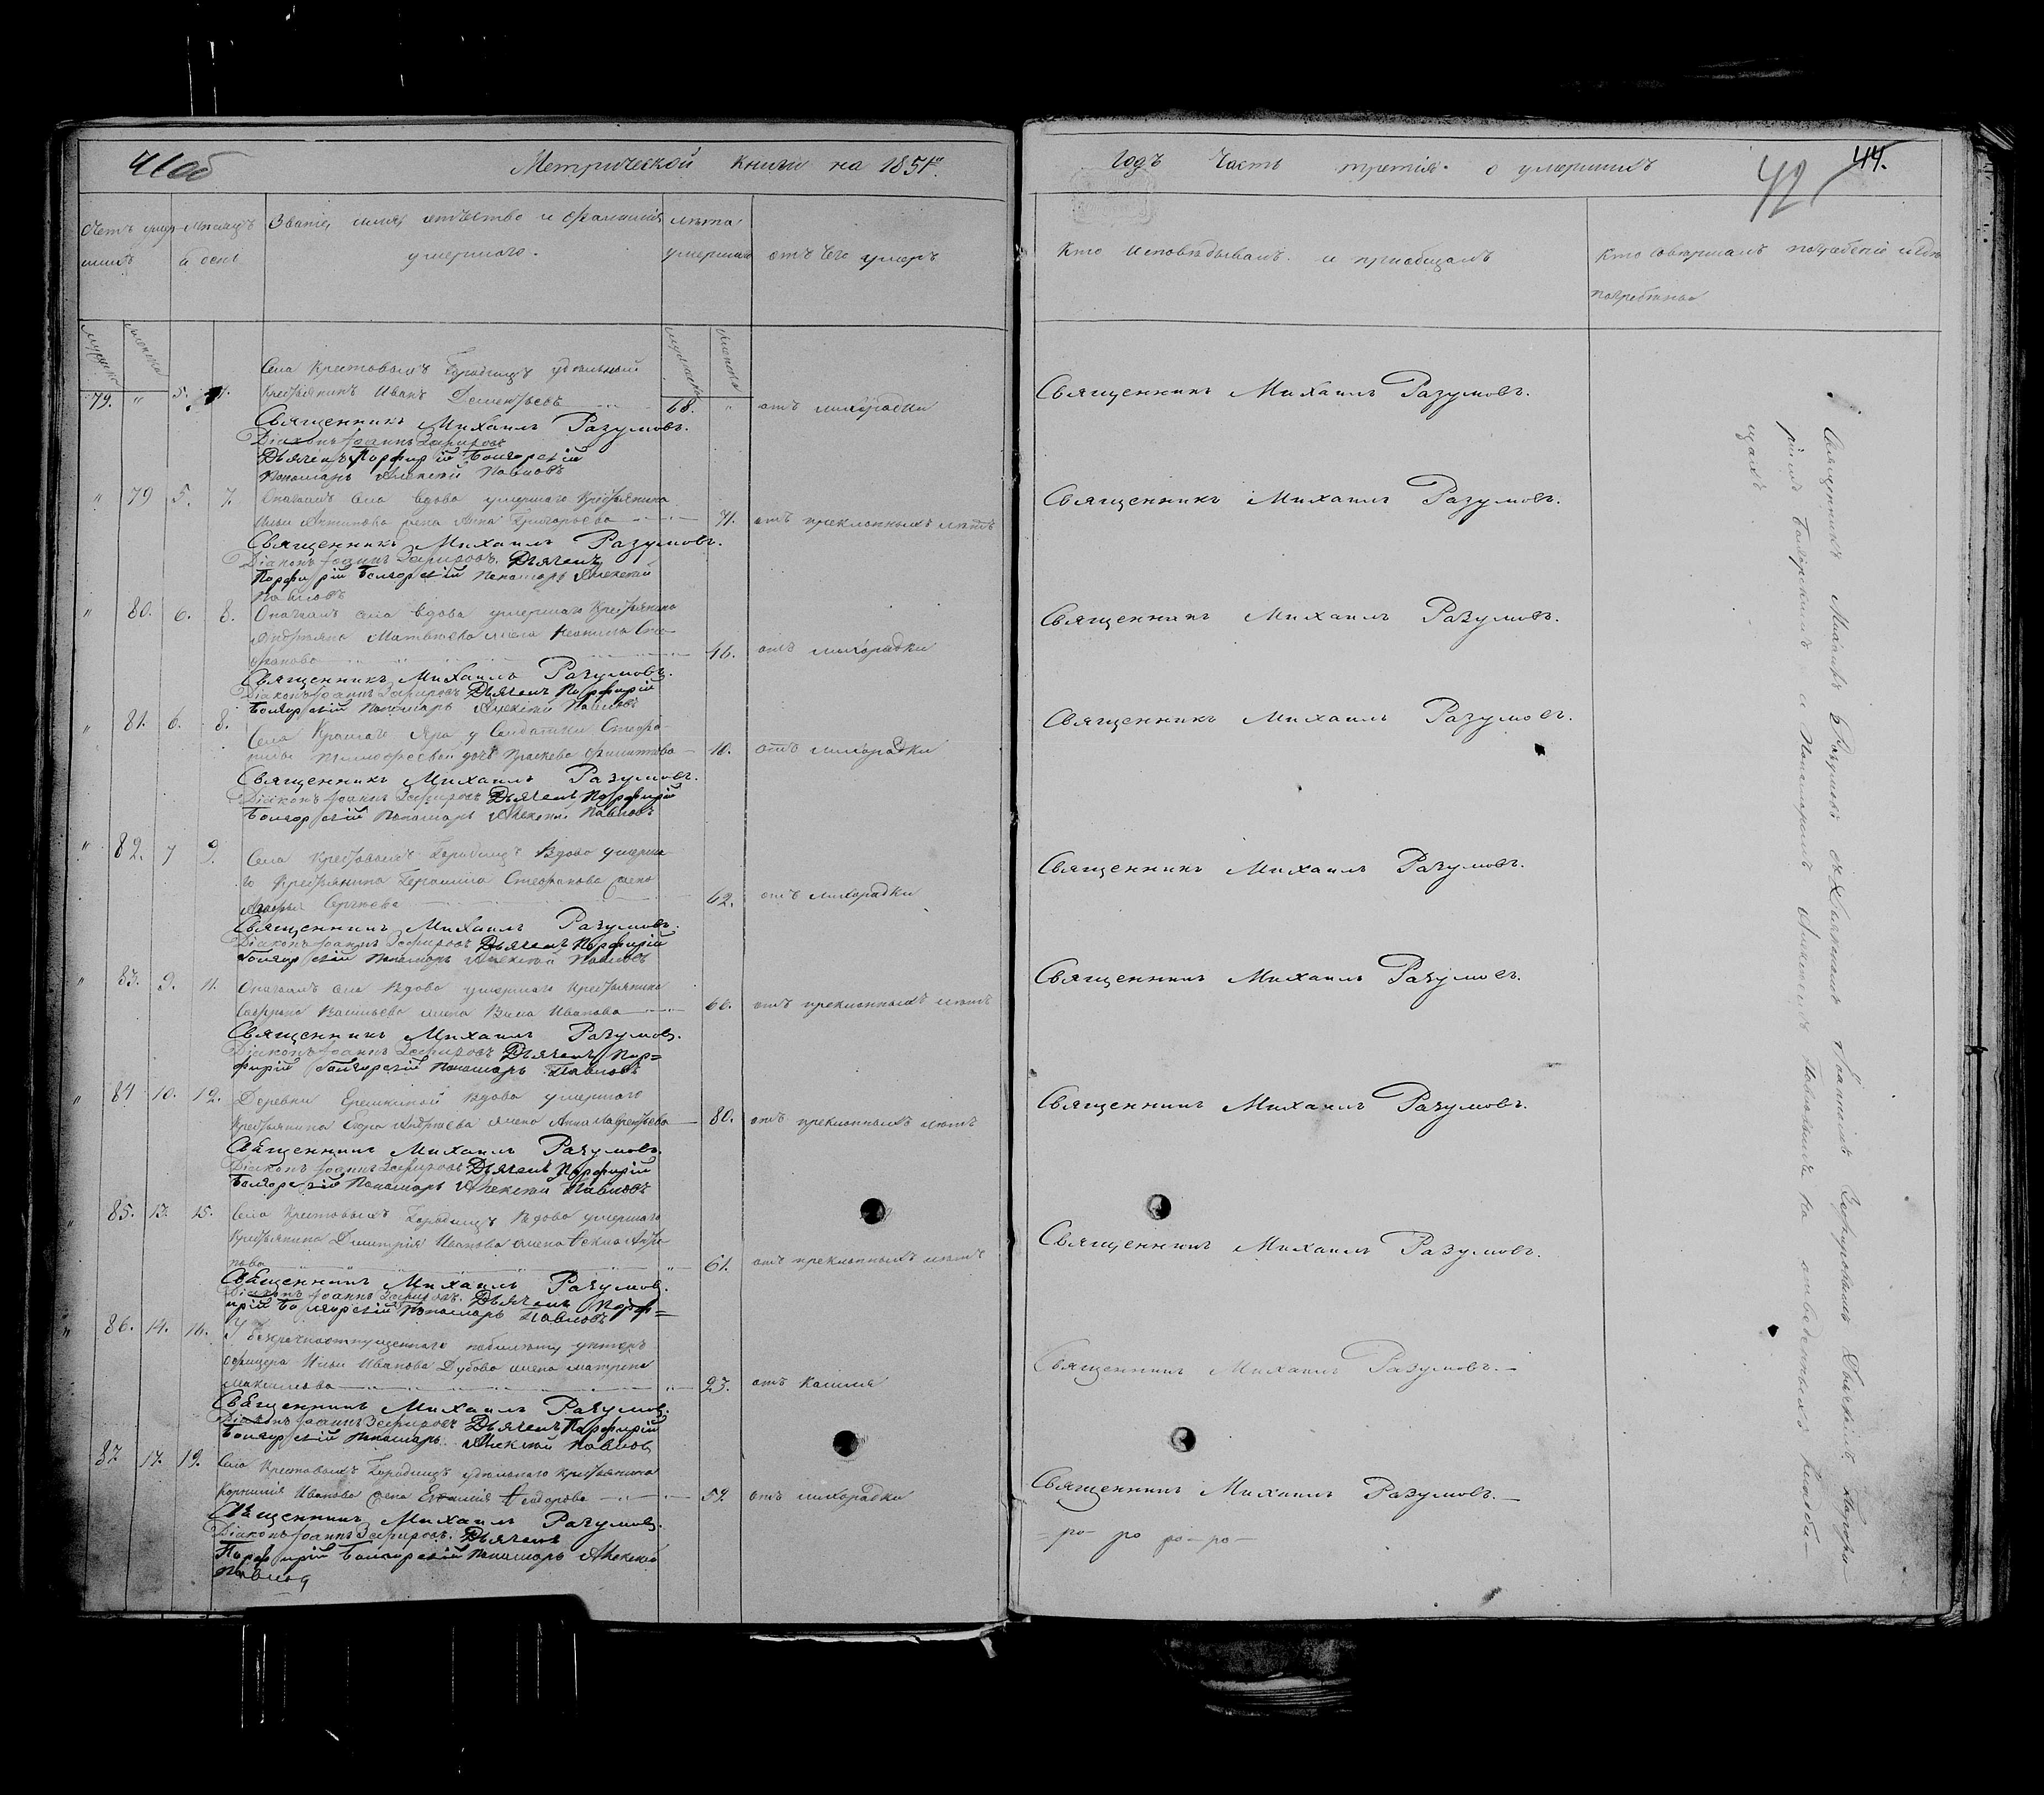 41 об
Метрической книги на 1851й
Счетъ умер-
шихъ
Мѣсяцъ
и день
Званіе, имя, отчество и фамилія
умершаго.
лѣта
умершаго
отъ чего умеръ
79. " 5.
Села Крестовыхъ Городищъ удѣльный
Крестьянинъ Иванъ Дементьевъ 68. " отъ лихорадки
Священникъ Михаилъ Разумовъ.
Діаконъ Іоаннъ Зефировъ
Дьячекъ Порфирій Болгорскій
Пономарь Алексѣй Павловъ
" 79 5. 7. Означен. села вдова умершаго Крестьянина
Ильи Антипова жена Анна Григорьева 71. отъ преклонныхъ лѣтъ
Священникъ Михаилъ Разумовъ.
Діаконъ Іоаннъ Зефировъ. Дьячекъ
Порфирій Болгорскій Пономарь Алексѣй
Павловъ
" 80. 6. 8. Означен. села вдова умершаго Крестьянина
Матвѣева жена
46. отъ лихорадки
Священникъ Михаилъ Разумовъ.
Діаконъ Іоаннъ Зефировъ Дьячекъ Порфирій
Болгорскій Пономарь Алексѣй Павловъ
" 81. 6. 8. Села Краснаго Яра у Солдатки
Тимофеевой дочь Прасковья 10. отъ лихорадки
Священникъ Михаилъ Разумовъ.
Діаконъ Іоаннъ Зефировъ Дьячекъ Порфирій
Болгорскій Пономарь Алексѣй Павловъ
" 82. 7 9. Села Крестовыхъ Городищъ Вдова умерша-
го Крестьянина Герасима Стефанова жена
Сергѣева 62. отъ лихорадки
Священникъ Михаилъ Разумовъ.
Діаконъ Іоаннъ Зефировъ Дьячекъ Порфирій
Болгорскій Пономарь Алексѣй Павловъ
" 83. 9. 11. Означен. села Вдова умершаго Крестьянина
Васильева жена Иванова 66. отъ преклонныхъ лѣтъ
Священникъ Михаилъ Разумовъ.
Діаконъ Іоаннъ Зефировъ Дьячекъ Пор=
фирій Болгорскій Пономарь Павловъ
" 84 10. 12. Деревни Еремкиной Вдова умершаго
Крестьянина Андреева жена Анна Лаврентьева 80. отъ преклонныхъ лѣтъ
Священникъ Михаилъ Разумовъ.
Діаконъ Іоаннъ Зефировъ Дьячекъ Порфирій
Болгорскій Пономарь Алексѣй Павловъ
" 85. 13. 15. Села Крестовыхъ Городищъ Вдова умершаго
Крестьянина Дмитрія Иванова жена Ѳекла Анти-
пова " 61. отъ преклонныхъ лѣтъ
Священникъ Михаилъ Разумовъ.
Діаконъ Іоаннъ Зефировъ. Дьячекъ Порф=
ирій Болгорскій Пономарь Павловъ
" 86. 14. 16. У безсрочноотпущеннаго унтеръ
офицера Ильи Иванова Дубова жена Матрена
" 23. отъ кашля
Священникъ Михаилъ Разумовъ.
Діаконъ Іоаннъ Зефировъ Дьячекъ Порфирій
Болгорскій Пономарь Алексѣй Павловъ
87 17. 19. Села Крестовыхъ Городищъ удѣльнаго Крестьянина
Корнилія Иванова жена Ѳеодорова отъ лихорадки
Священникъ Михаилъ Разумовъ.
Діаконъ Іоаннъ Зефировъ. Дьячекъ
Порфирій Болгорскій Пономарь Алексѣй
Павловъ
годъ Часть третія о умершихъ
42
44.
Кто исповѣдывалъ и пріобщалъ
Кто совершалъ погребеніе и гдѣ
погребены
Священникъ Михаилъ Разумовъ.
Священникъ Михаилъ Разумовъ.
Священникъ Михаилъ Разумовъ.
Священникъ Михаилъ Разумовъ.
Священникъ Михаилъ Разумовъ.
Священникъ Михаилъ Разумовъ.
Священникъ Михаилъ Разумовъ.
Священникъ Михаилъ Разумовъ.
Священникъ Михаилъ Разумовъ.
Священникъ Михаилъ Разумовъ.
= ро- ро ро-ро-
Священникъ Михаилъ Разумовъ съ Діакономъ Іоанномъ Зефировымъ Дьячкомъ Порфи-
ріемъ Болгорскимъ и Пономаремъ Алексѣемъ Павловымъ на отведенномъ кладби-
щахъ